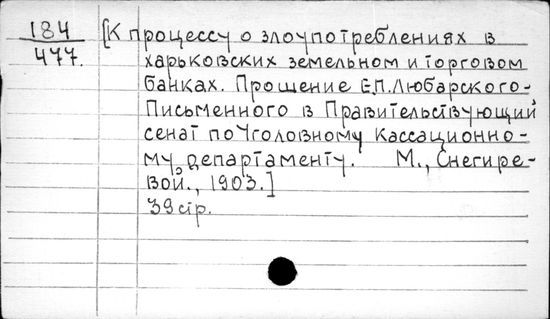 184
477.
[К процессу о злоупотреблениях в
харьковских земельном и торговом
банках. Прошение Е.П. Любарского-
Письменного в Правительствующий
сенат по Уголовному Кассационно-
му департаменту. М., Снегире-
вой., 1903.]
39 стр.